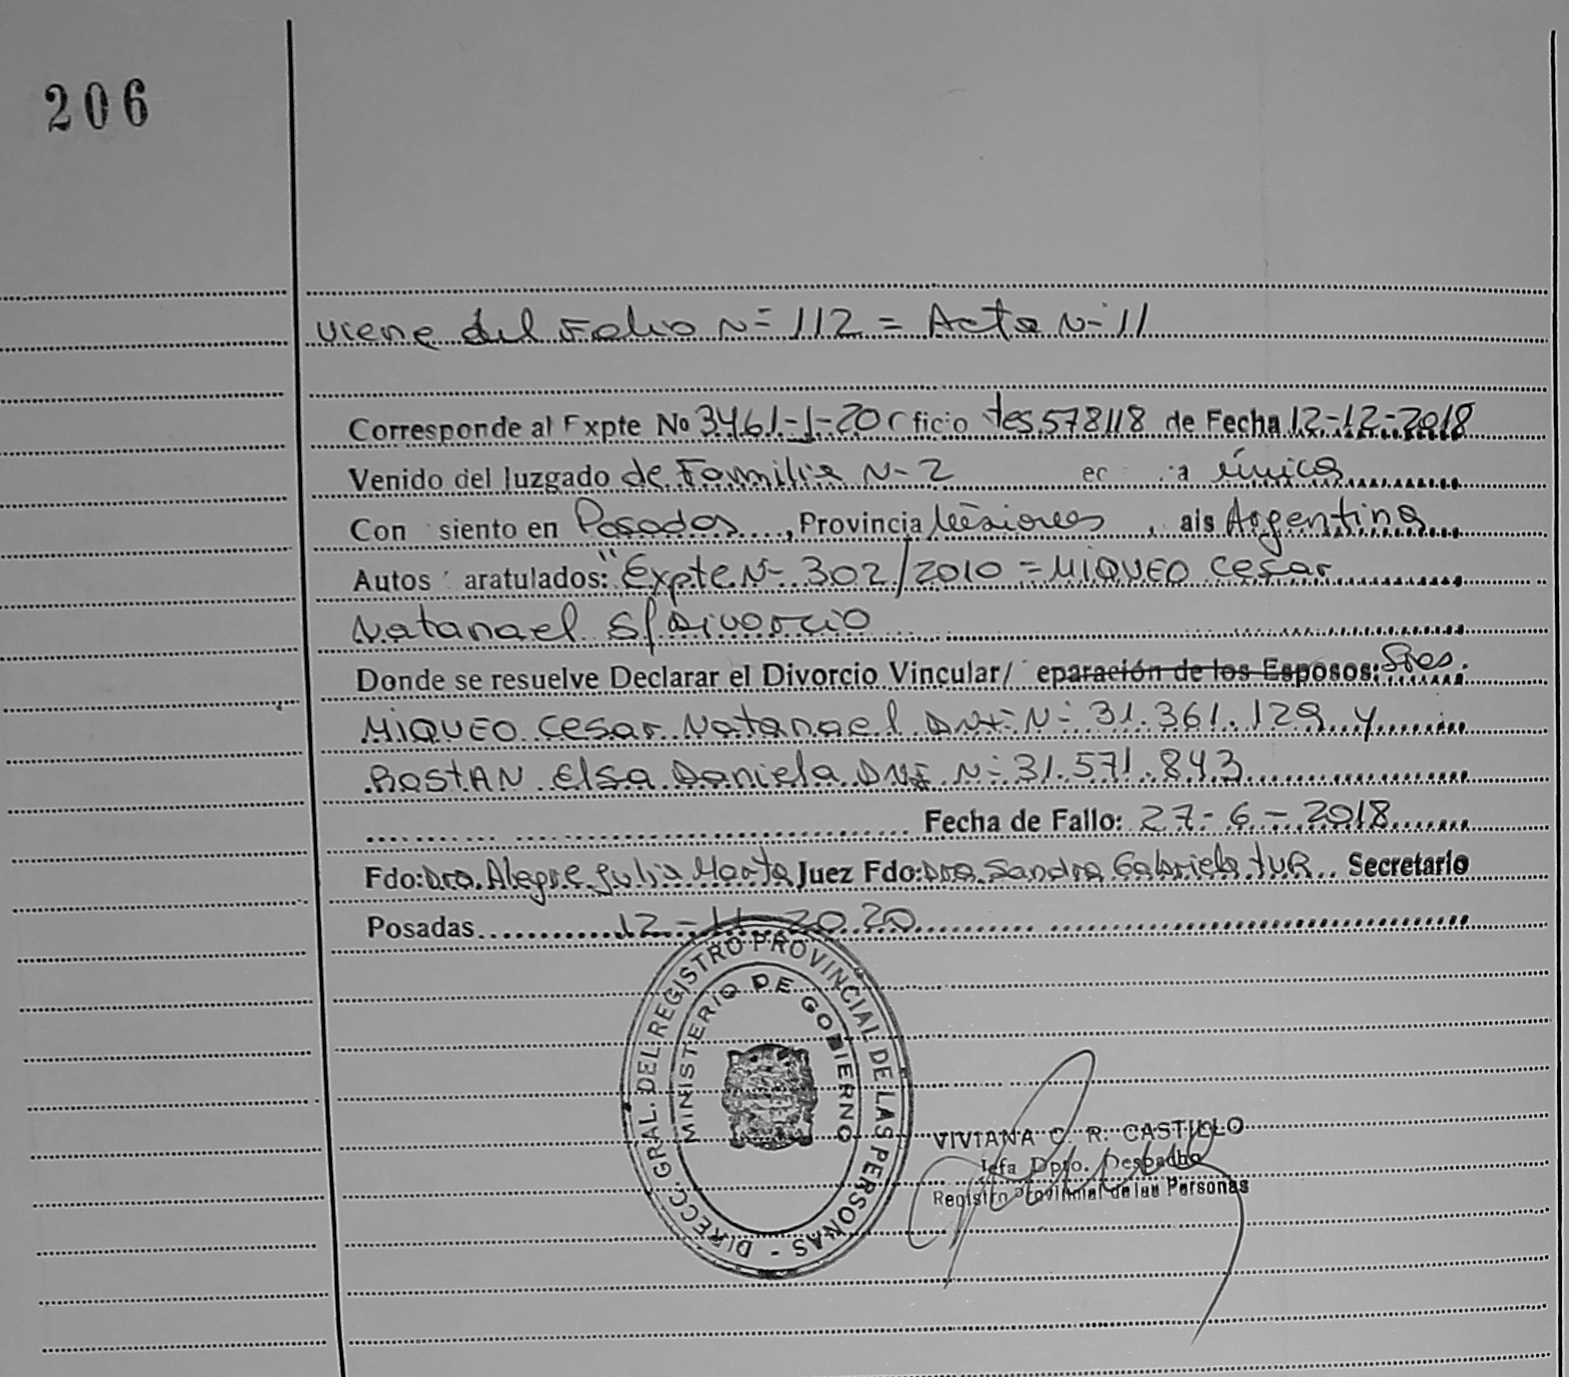 206
viene del Folio N= 112 = Acta N- 11
Corresponde al Expte No 3461-1-20 ficio 578118 de Fecha 12-12-2018
Venido del Juzgado de Familia N-2 ec a única
Con siento en Posadas, Provincia Misiones, ais Argentina
Autos aratulados: "Expte N- 302/2010 = MIQUEO Cesar
Natanael S/Divorcio
Donde se resuelve Declarar el Divorcio Vincular/ eparación de los Esposos: Sres.
MIQUEO Cesar Natanael DNI N- 31.361.129 y
ROSTAN Elsa Daniela DNI N- 31.571.843
Fecha de Fallo: 27-6-2018
Fdo: Dra. Alegre Julia Marta Juez Fdo: Dra. Sandra Gabriela TUR Secretario
Posadas 12-11-2020
DIRECC. GRAL. DEL REGISTRO PROVINCIAL DE LAS PERSONAS -
MINISTERIO DE GOBIERNO
VIVIANA C. R. CASTILLO
Jefa Dpto. Despacho
Registro Provincial de las Personas